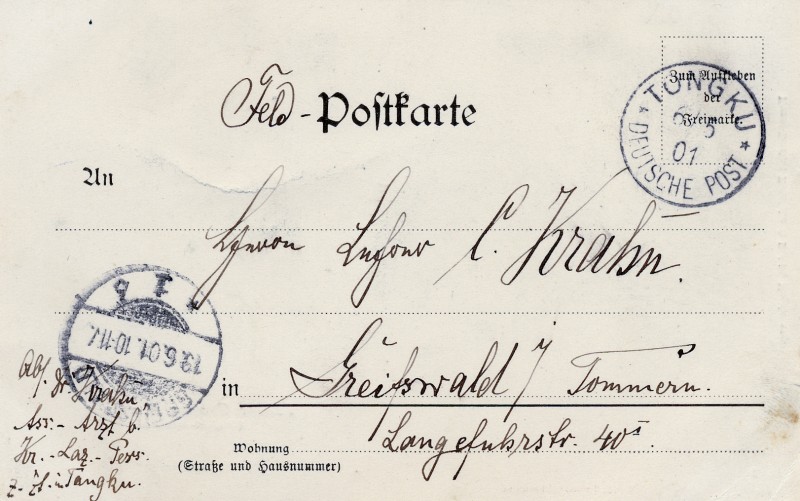 Feld-Postkarte
Zum Aufkleben
der
Freimarke.
* TONGKU *
01
DEUTSCHE POST
An
Herrn Lehrer C. Krahn.
19.6.01. 10-11V.
in Greifswald / Pommern.
Langefuhrstr. 40I
Wohnung
(Straße und Hausnummer)
Abs. Dr Krahn
Ass.-Arzt b.
Kr.-Laz.-Pers.
z. Zt. in Tangku.